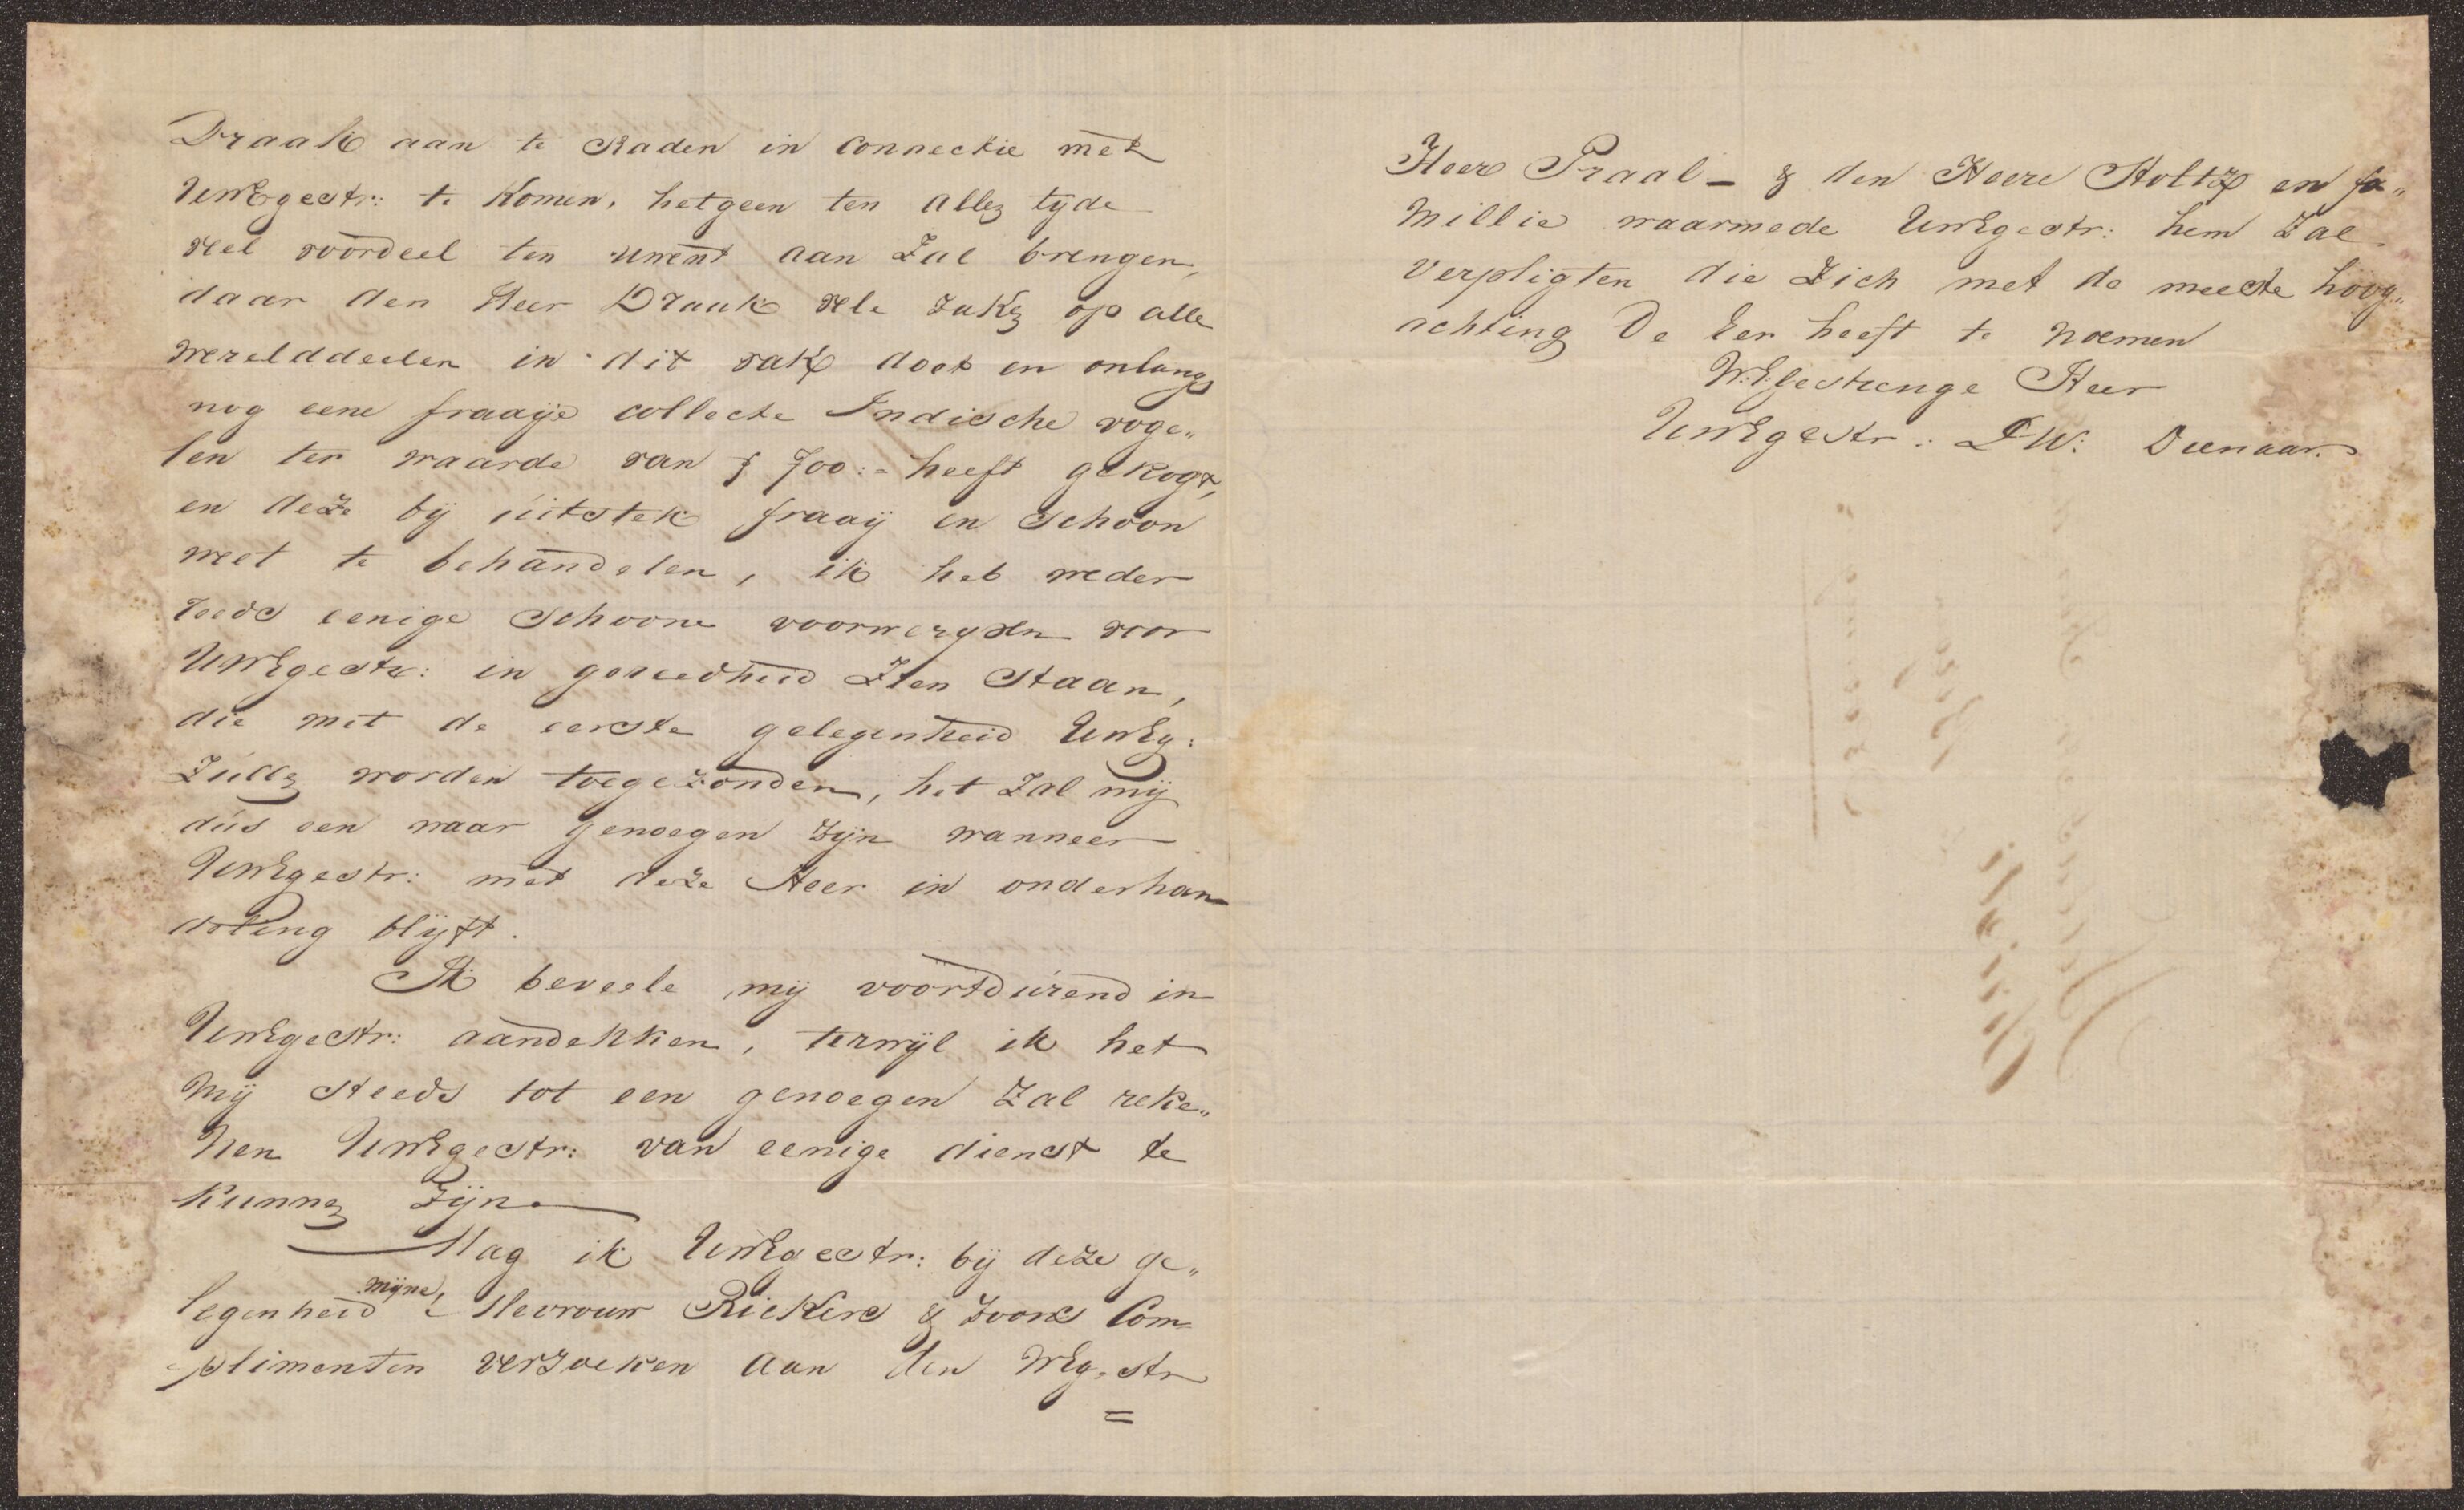 Draak aan te Raden in Connectie met
UwEgestr: te Komen, hetgeen ten allen tyde
veel voordeel ten uwent aan Zal brengen,
daar den Heer Draak vele zaken op alle
werelddeelen in dit vak doet en onlangs
nog eene fraaije collecte Indische voge„
len ter waarde van ƒ 700:- heeft gekogt,
en deze bij uitstek fraaij en Schoon
weet te behandelen, ik heb weder
reeds eenige Schoone voorwerpen voor
UwEgestr: in gereedheid Zien Staan,
die met de eerste gelegenheid UwEg:
Zullen worden toegezonden, het Zal mij
dus een waar genoegen Zijn wanneer
UwEgestr: met deze Heer in onderhan
deling blijft.
Ik beveele mij voortdurend in
UwEgestr: aandenken, terwijl ik het
Mij Steeds tot een genoegen Zal reke„
Nen UwEgestr: van eenige dienst te
Kunnen Zijn.
Mag ik UwEgestr: bij deze ge„
legenheid mijne, Mevrouw Riekers & Zoons Com=
plimenten verzoeken aan den WEg. Str
=
Heer Praal - & den Heere Stoltz en fa„
Millie waarmede UwEgestr: hem Zal
Verpligten die Zich met de meeste hoog„
achting De Eer heeft te Noemen
W:E:Gestrenge Heer
UwEgestr: DW: Dienaar.